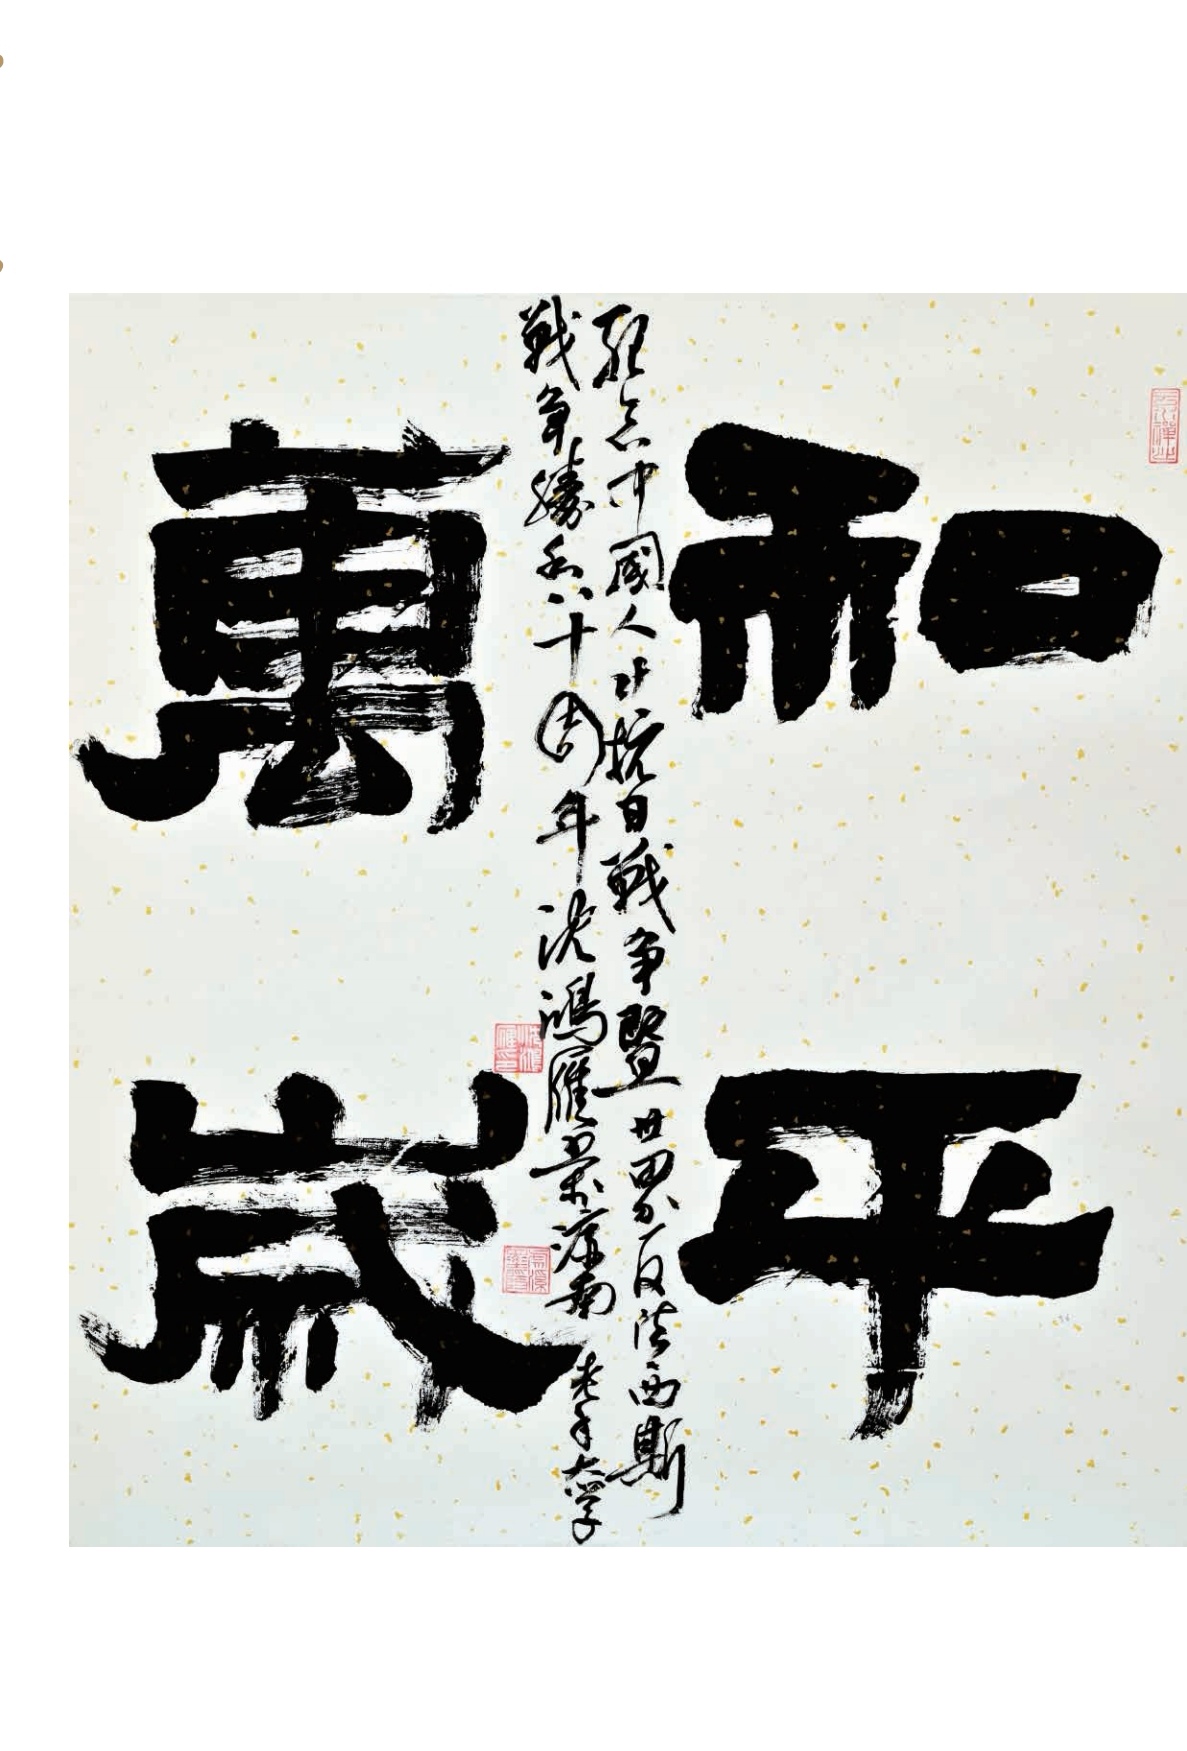 和平
萬歲
紀念中國人民抗日戰争暨世界反法西斯
戰争勝利八十周年沈鴻雁書於济南老年大學